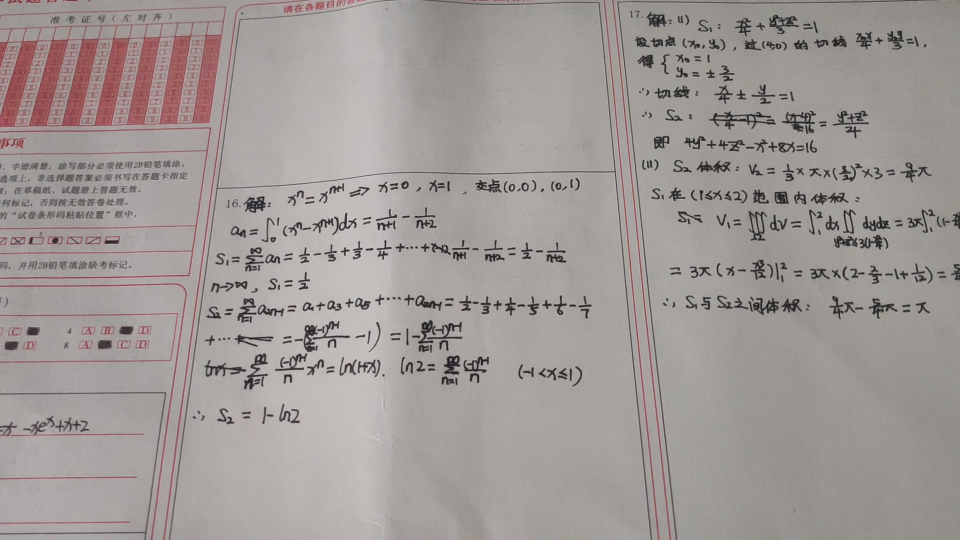 准考证号(左对齐)
事项
字迹清楚;涂写部分必须使用2B铅笔填涂。
选项上,非选择题答案必须书写在答题卡指定
在草稿纸、试题册上答题无效。
何标记,否则按无效答卷处理。
的"试卷条形码粘贴位置"框中。
码,并用2B铅笔填涂缺考标记。
4 A B D
8 A C D
-xeˣ+x+2
请在各题目的答
16. 解: xⁿ = xⁿ⁺¹ => x=0, x=1, 交点(0,0), (0,1)
aₙ = ∫₀¹ (xⁿ - xⁿ⁺¹)dx = 1/(n+1) - 1/(n+2)
S₁ = ∑ₙ₌₁^∞ aₙ = 1/2 - 1/3 + 1/3 - 1/4 + ⋯ + 1/(n+1) - 1/(n+2) = 1/2 - 1/(n+2)
n→∞, S₁ = 1/2
S₂ = ∑ₙ₌₁^∞ a₂ₙ₋₁ = a₁ + a₃ + a₅ + ⋯ + a₂ₙ₋₁ = 1/2 - 1/3 + 1/4 - 1/5 + 1/6 - 1/7
+ ⋯ = -(∑ₙ₌₁^∞ (-1)ⁿ⁺¹/n - 1) = 1 - ∑ₙ₌₁^∞ (-1)ⁿ⁺¹/n
∑ₙ₌₁^∞ (-1)ⁿ⁺¹/n xⁿ = ln(1+x). ln2 = ∑ₙ₌₁^∞ (-1)ⁿ⁺¹/n (-1<x≤1)
∴ S₂ = 1 - ln2
17. 解: (I) S₁: x²/4 + (y²+z²)/3 = 1
设切点(x₀, y₀), 过(4,0)的切线 x₀x/4 + y₀y/3 = 1,
得 { x₀ = 1
y₀ = ± 3/2
∴ 切线: x/4 ± y/2 = 1
∴ S₂: (x-4)²/16 = (y²+z²)/4
即 4y²+4z²-x²+8x=16
(II) S₂体积: V₂ = 1/3 × π × (3/2)² × 3 = 9/4 π
S₁在(1≤x≤2)范围内体积:
V₁ = ∭ dV = ∫₁² dx ∬ dydz = 3π∫₁² (1-
= 3π(x - x³/12)|₁² = 3π × (2 - 2/3 - 1 + 1/12) =
∴ S₁与S₂之间体积: 9/4 π - 5/4 π = π